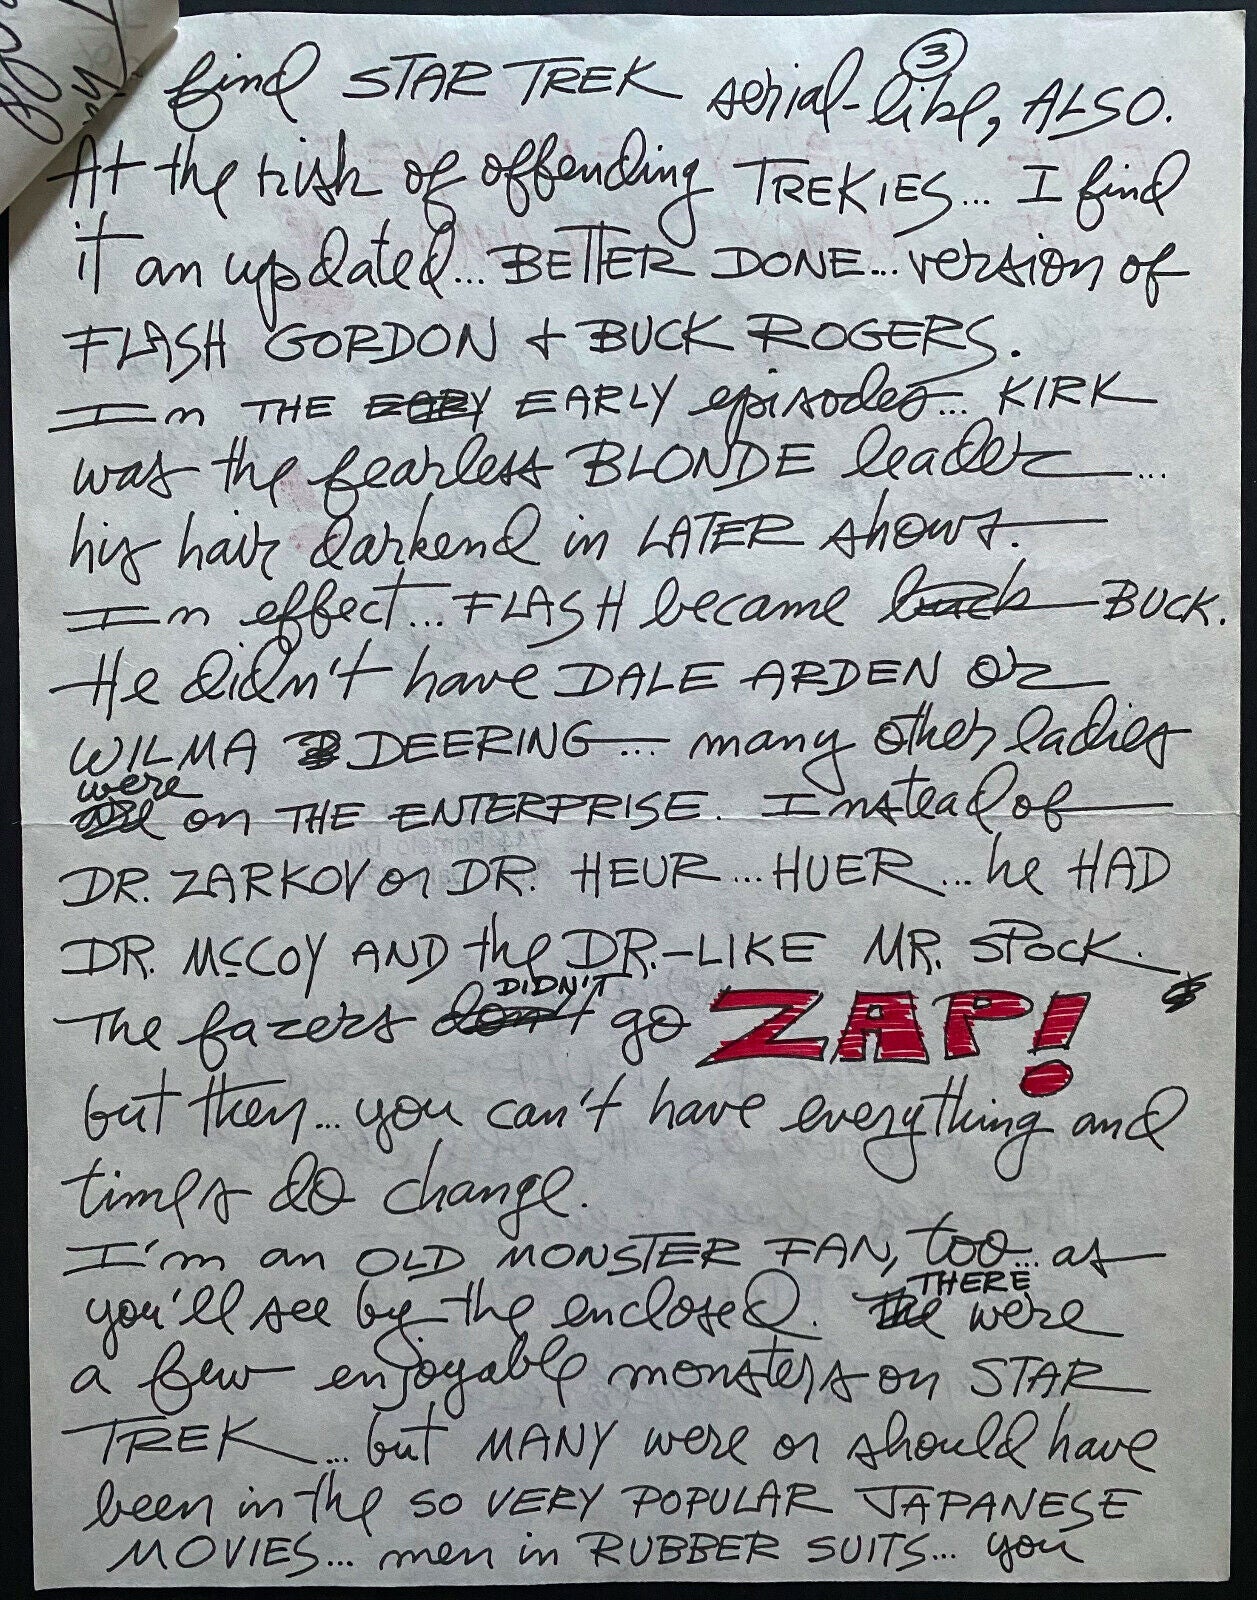 3
find STAR TREK serial-like, ALSO.
At the risk of offending TREKIES... I find
it an updated... BETTER DONE... version of
FLASH GORDON + BUCK ROGERS.
In THE EARLY episodes... KIRK
was the fearless BLONDE leader...
his hair darkend in LATER shows.
In effect... FLASH became BUCK.
He didn't have DALE ARDEN or
WILMA DEERING... many other ladies
were on THE ENTERPRISE. Instead of
DR. ZARKOV or DR. HEUR... HUER... he HAD
DR. McCOY AND the DR.-LIKE MR. SPOCK.
The fazers DIDN'T go ZAP!
but then... you can't have everything and
times do change.
I'm an OLD MONSTER FAN, too... as
you'll see by the enclosed. THERE were
a few enjoyable monsters on STAR
TREK... but MANY were or should have
been in the SO VERY POPULAR JAPANESE
MOVIES... men in RUBBER SUITS... you